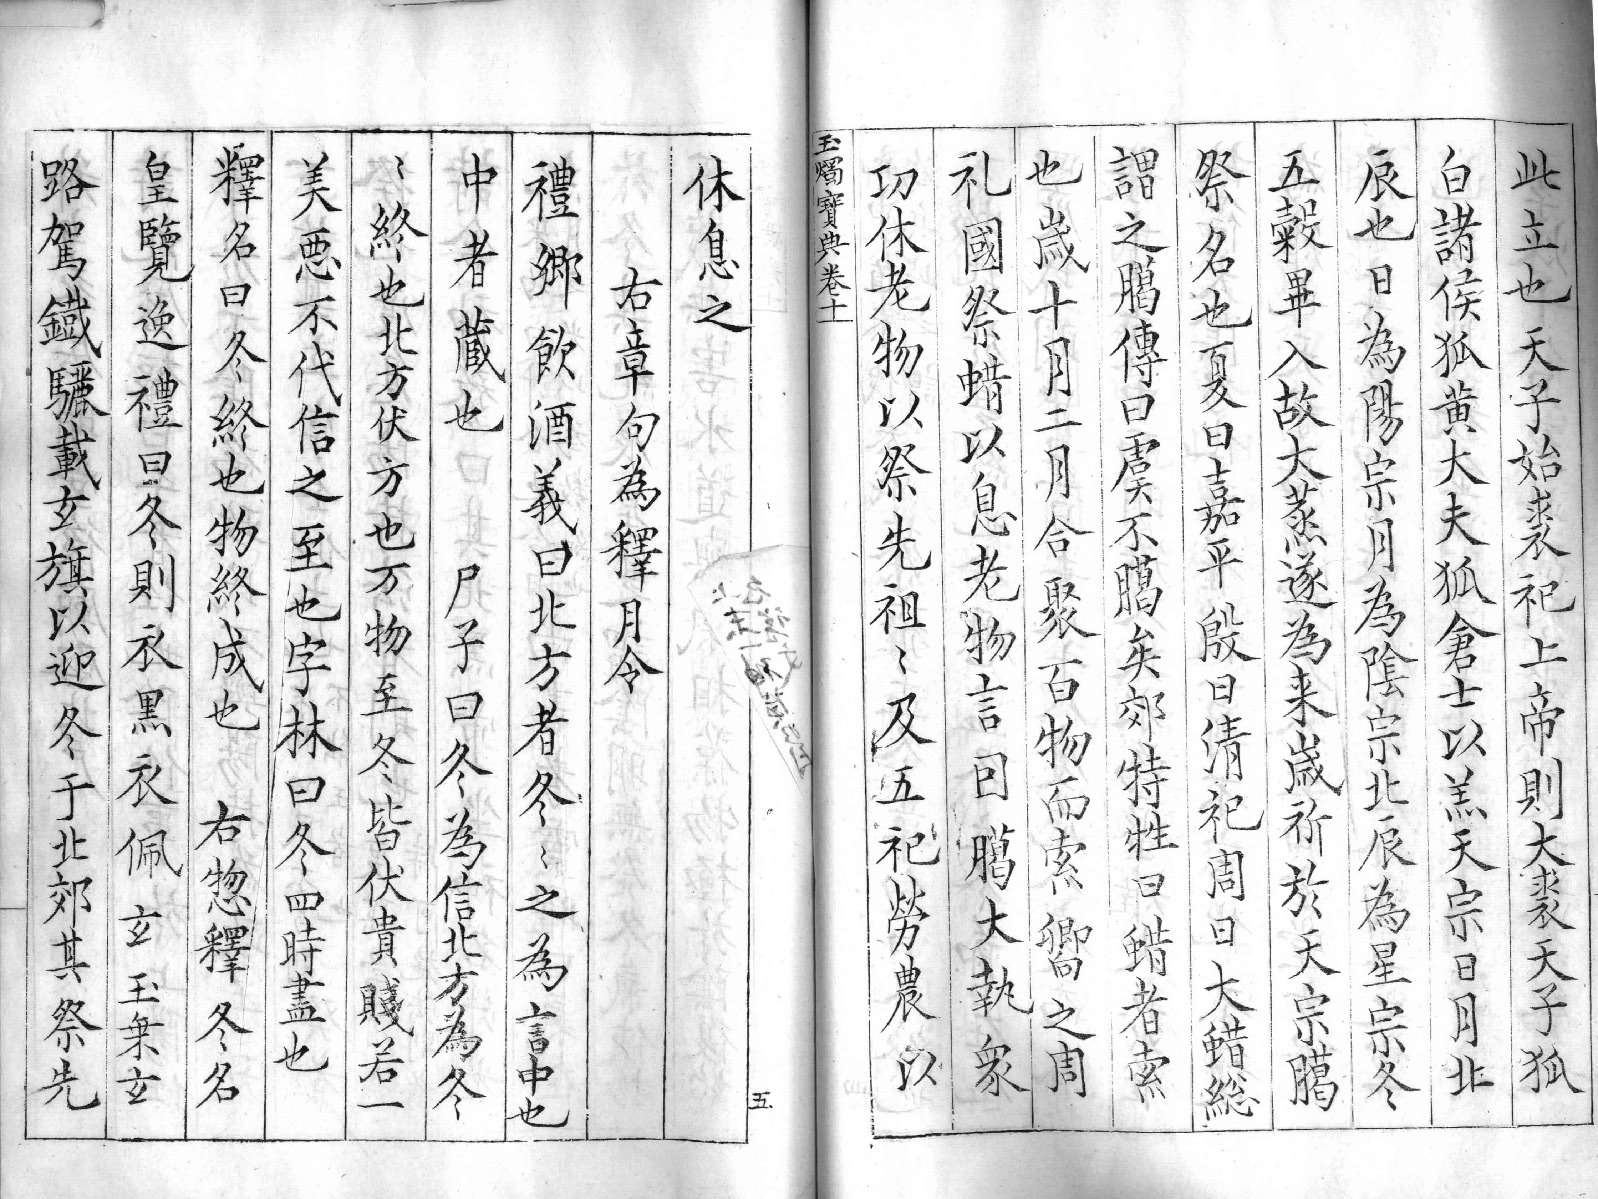 此立也天子始裘祀上帝則大裘天子狐
白諸侯狐黄大夫狐倉士以羔天宗日月北
辰也日為陽宗月為陰宗北辰為星宗冬
五穀畢入故大蒸遂為来歳祈於天宗臈
祭名也夏曰嘉平殷曰清祀周曰大蜡総
謂之臈傳曰虞不臈矣郊特牲曰蜡者索
也歳十月二月合聚百物而索嚮之周
礼國祭蜡以息老物言囙臈大執衆
功休老物以祭先祖〻及五祀勞農以
玉燭寶典卷十一
休息之
右章句為釋月令
禮鄉飲酒義曰北方者冬〻之為言中也
中者蔵也　尸子曰冬為信北方為冬
〻終也北方伏方也万物至冬皆伏貴賤若一
美悪不代信之至也字林曰冬四時盡也
釋名曰冬終也物終成也　右惣釋冬名
皇覽逸禮曰冬則衣黒衣佩玄玉乗玄
路駕鐵驪載玄旗以迎冬于北郊其祭先
五